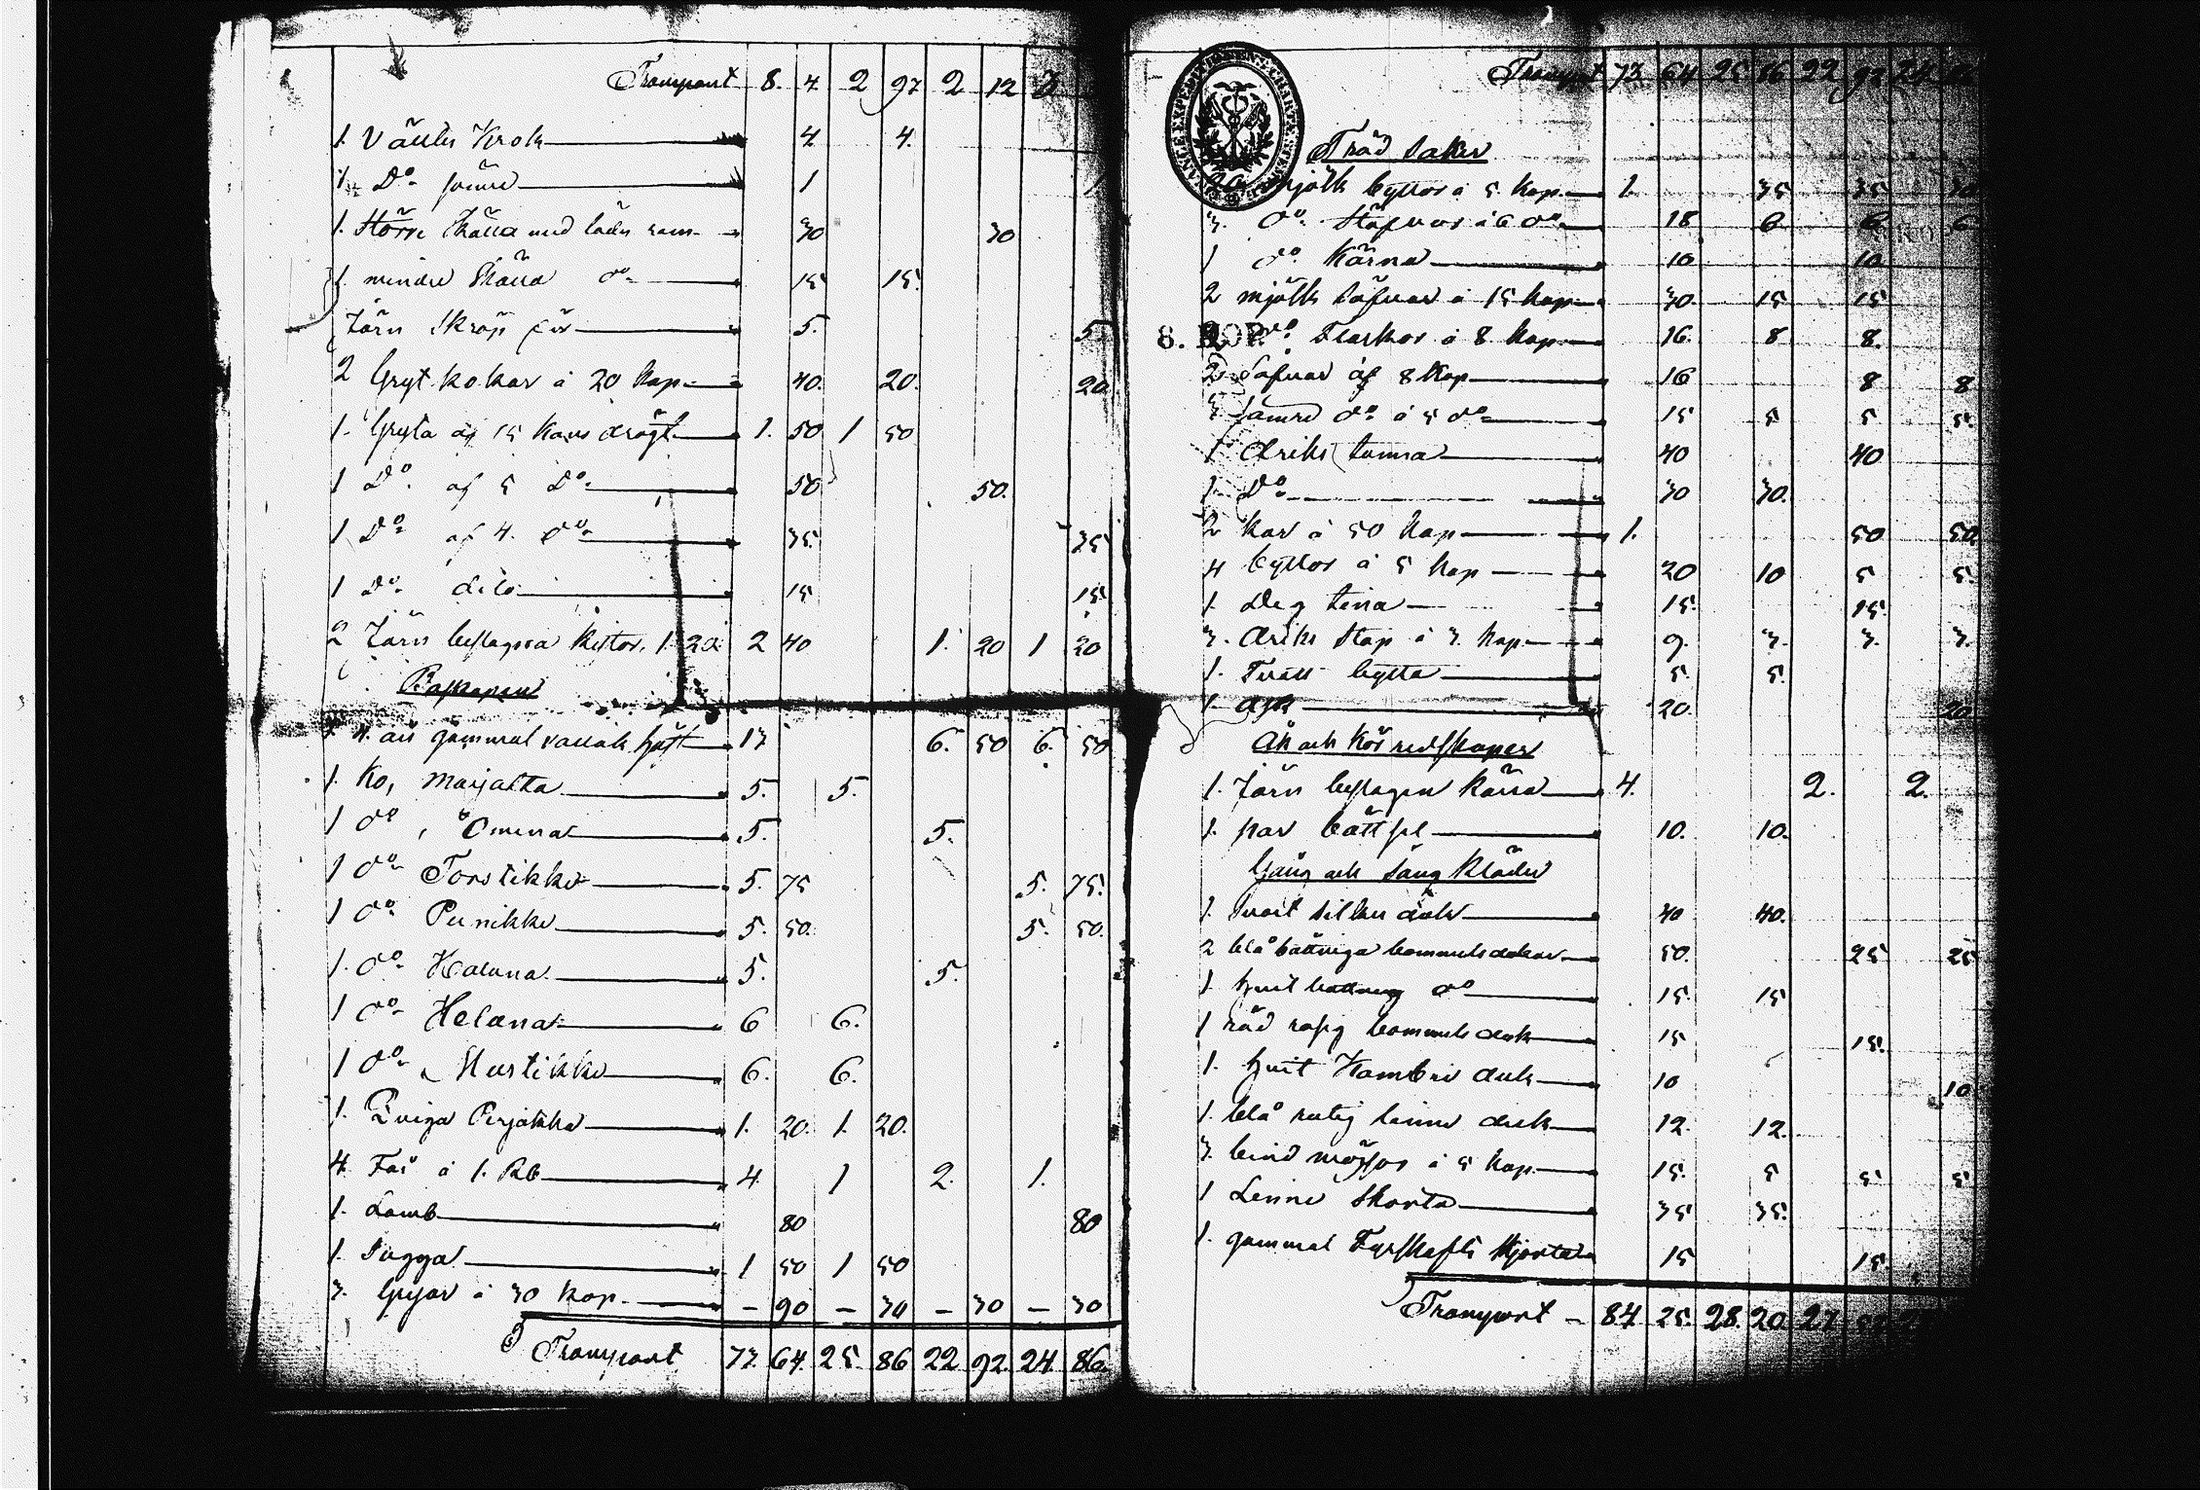 Transport 8. 4 2 97 2 12 3
1. Källu Krok 4 4.
1. Do sämre 1 1
1. Större Skälla med läder ram 30 30
1. mindre Skälla do 15 15.
Järn Skräp för 5. 5
2 Grytkokar á 20 kop 40. 20. 20
1. Gryta af 15 Kans drägt 1. 50 1 50
1 Do. af 5 Do. 50 50.
1 Do af 4. do 35. 35
1 Do. dito 15 15.
2 Järn beslagna Kistor 1. 20 2 40 1. 20 1 20
Boskapen
1. år gammal vallak häst 13 6. 50 6. 50
1. Ko, Marjatta 5. 5.
1 do, Omena 5. 5.
1 do Torstikko 5. 75 5. 75.
1 do Punikko 5. 50. 5. 50.
1. do Haluna 5. 5.
1 do Heluna 6 6.
1 do Mustikko 6. 6.
1. Qviga Perjakka 1. 20. 1. 20.
4. Får á 1. Rb 4. 1 2. 1.
1. Lamb 80 80
1. Sugga 1 50 1 50
3. Grijor á 30 kop. – 90 – 30 – 30 – 30
Transport 73 64. 25. 86 22 92. 24. 86.
Transport 73. 64 25. 86 22 92 24
Träd saker
20 mjölk byttor á 5 kop 1. 35 35 30
3. do Stäfvor á 6 do 18 6 6 6
1 do Kärna 10 10
2 mjölk såfvar á 15 kop 30. 15 15
8. KOP.
2 do Flaskor á 8 kop 16. 8 8.
2 Såfvar af 8 kop 16 8 8
3 sämre do á 5 do 15 5 5 5.
1 driks tunna 40 40
1. Do 30 30.
2 Kar á 50 kop 1. 50 50
4 byttor á 5 kop 20 10 5 5.
1. Deg tina 15. 15.
3. driks Stop á 3 kop 9. 3. 3. 3.
1. Tvätt bytta 5. 5.
1 ask 20. 20
Åk och Kör redskaper
1. Järn beslagen Kärra 4. 2. 2.
1. par bätt sel 10. 10.
Gång och Säng Kläder
1. svart silkes duk 40 40.
2 blå bottniga bommuls dukar 50. 25 25
1. hvit bottnig do 15. 15
1 röd rosig bommuls duk 15 15.
1. hvit Kambri duk 10 10
1. blå rutig linne duk 12. 12.
3. bind mössor á 5 kop. 15. 5 5 5
1 Linne Skorta 35 35.
1. gammal Fyrskafts Kjortel 15 15
Transport – 84. 25. 28. 20.